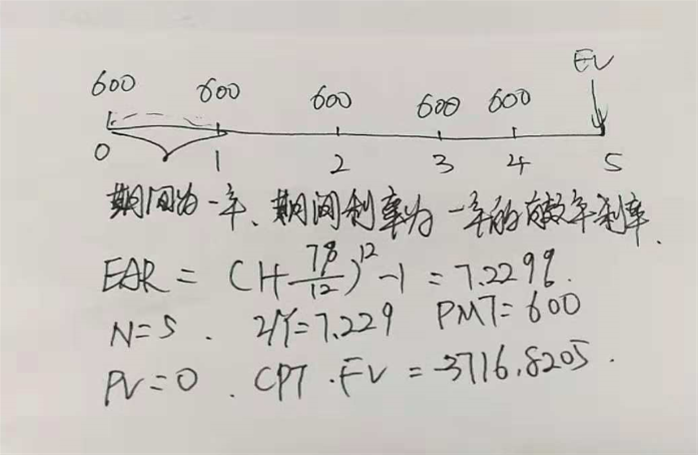 FV
600 600 600 600 600
0 1 2 3 4 5
期间为一年、期间利率为一年的有效年利率.
EAR = (1+7%/12)^12-1 = 7.229%.
N=5. I/Y=7.229 PMT=600
PV=0. CPT.FV=-3716.8205.